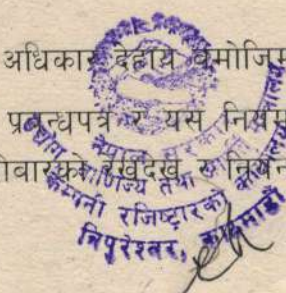 अधिकार देहाय बमोजिम
प्रबन्धपत्र र यस नियम
ोबारको रेखदेख र नियन
नेपाल सरकार
उद्योग वाणिज्य तथा आपूर्ति मन्त्रालय
कम्पनी रजिष्ट्रारको कार्यालय
त्रिपुरेश्वर, काठमाडौं